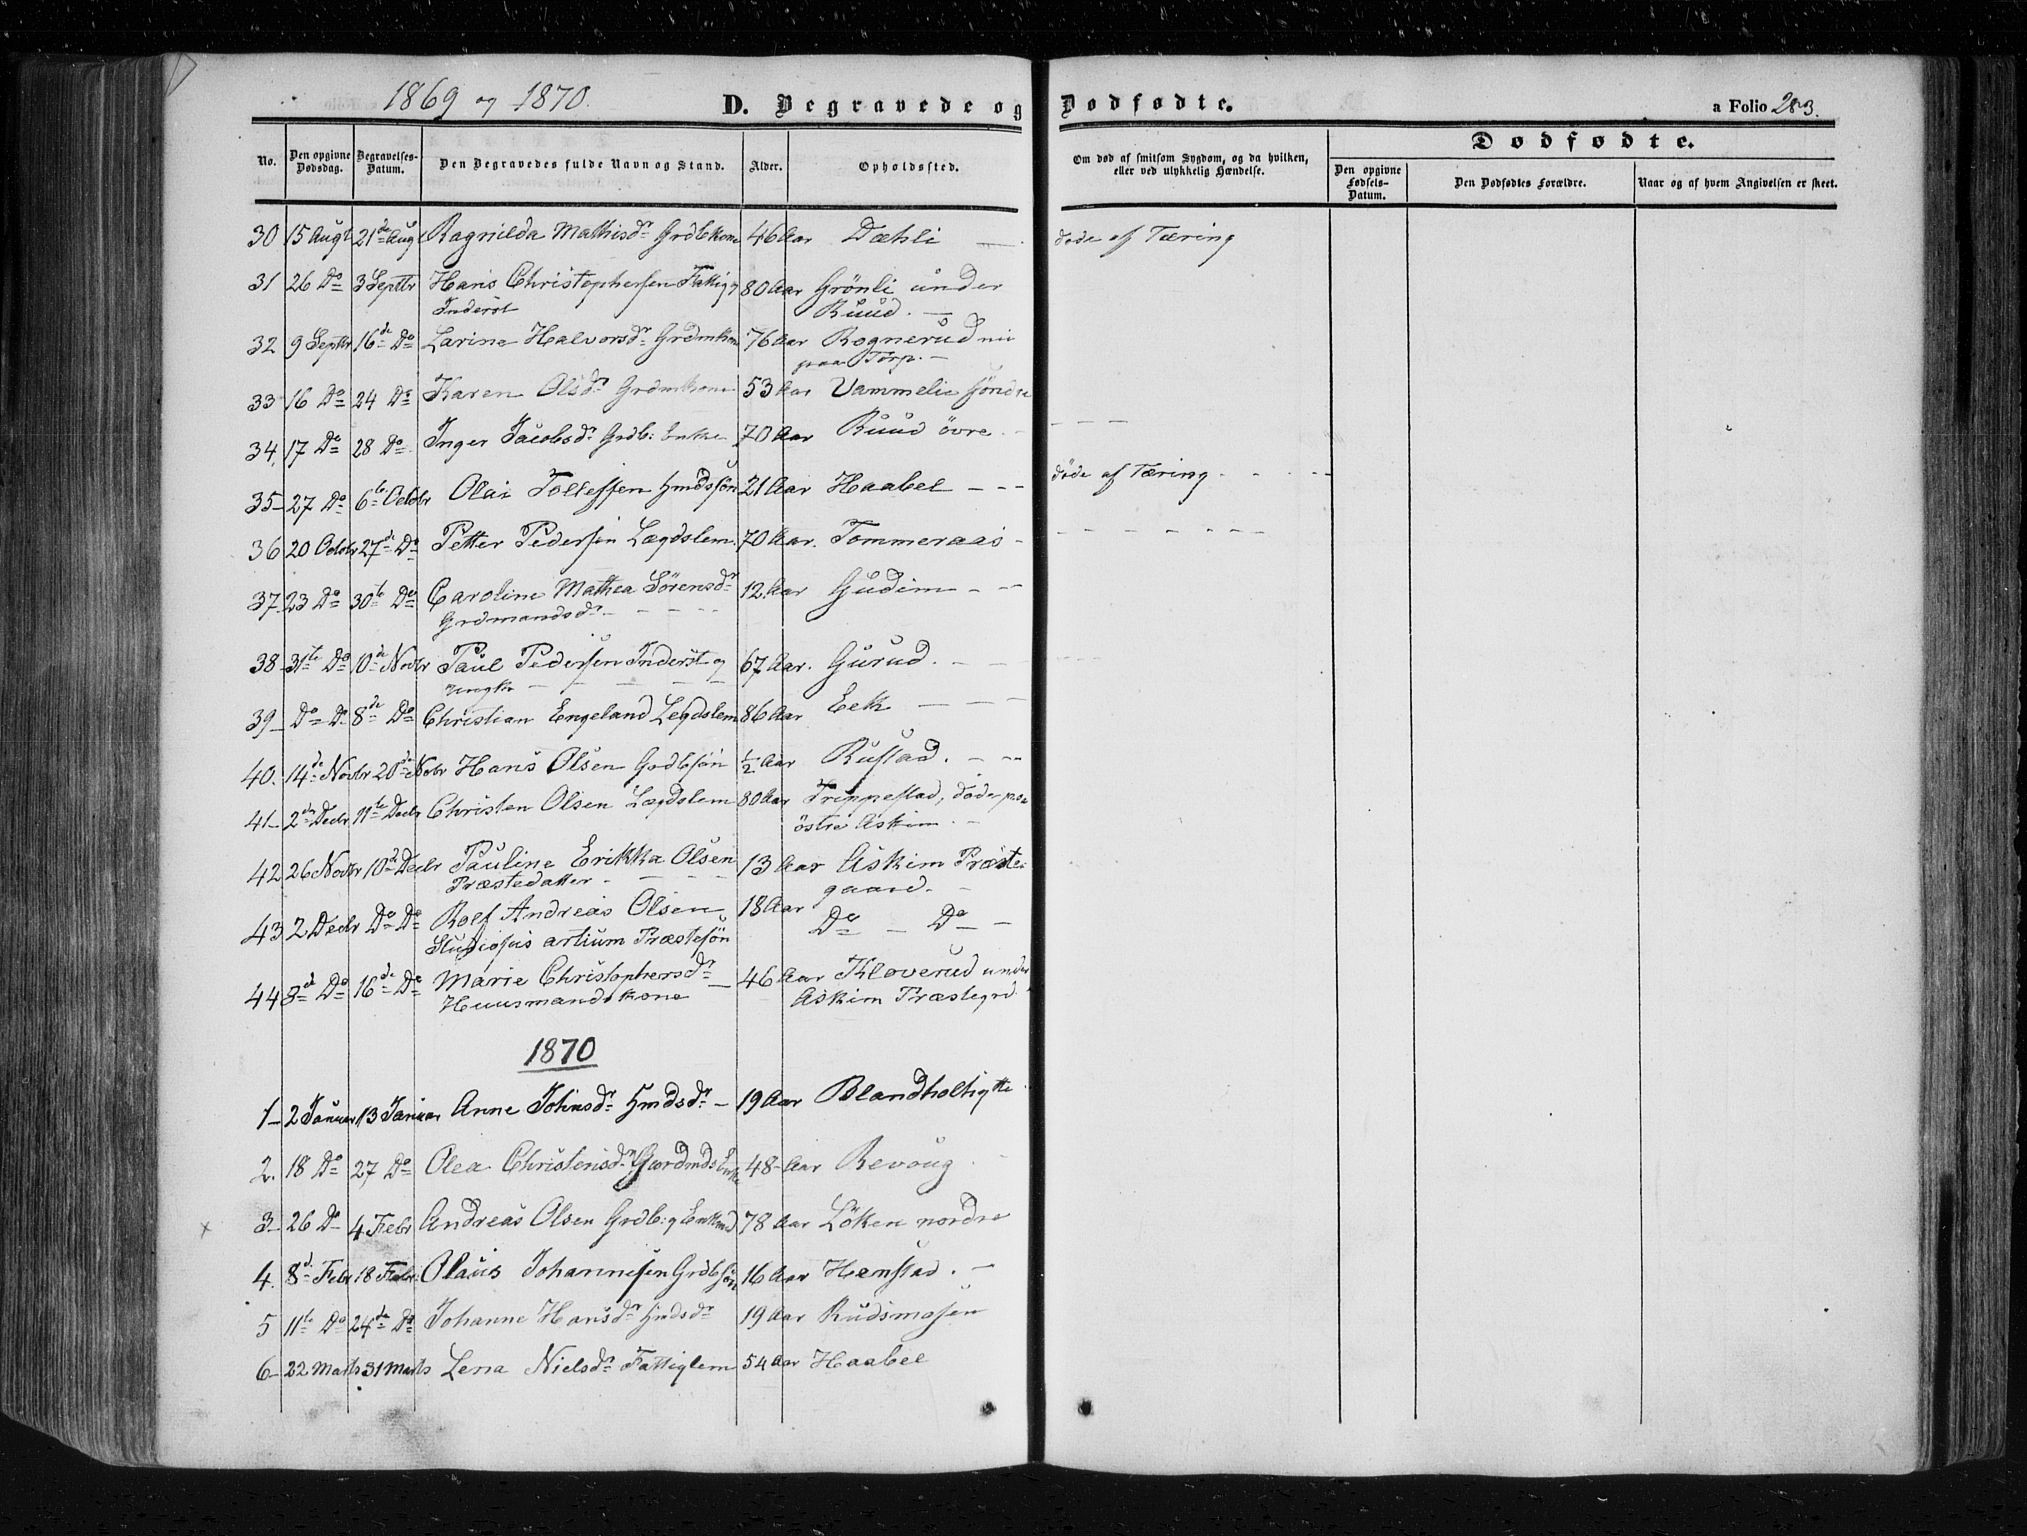 1869 og 1870.
D. Begravede og Dødfødte.
a Folio 283.
No. Den opgivne Dødsdag. Begravelses-Datum. Den Begravedes fulde Navn og Stand. Alder. Opholdssted. Om død af smitsom Sygdom, og da hvilken, eller ved ulykkelig Hændelse.
Dødfødte.
Den opgivne Fødsels-Datum. Den Dødfødtes Forældre. Naar og af hvem Angivelsen er skeet.
30 15 Augt 21de Augt Ragnilda Mathisdr Grdbkone 46 Aar Dæhli — døde af Tæring
31 26 Do 3 Septbr Hans Christophersen Fattig og 80 Aar Grönli under
Inderst Ruud. —
32 9 Septbr 16de Do Larine Halvorsdr Grdmkone 76 Aar Rognerud nu
paa Torp. —
33 16 Do 24 Do Karen Olsdr Grdmkone 53 Aar Vammelie söndre
34. 17 Do 28 Do Inger Jacobsdr Grdb: Enke 70 Aar Ruud övre. - — — —
35 — 27 Do 6te Octobr Olai Tollefsen Hmdssön 21 Aar Haabel — — — döde af Tæring - - - -
36 20 Octobr 27de Do Petter Pedersen Lægdslem. 70 Aar. Tommeraas -
37. 23 Do 30te Do Caroline Mathea Sörensdr 12 Aar Gudim — —
Grdmandsdr —
38 31te Do 10de Novbr Paul Pedersen Inderst og 67 Aar. Gurud. —
Ungkr — — — —
39 — Do Do 8de Do Christian Engeland Legdslem 86 Aar Eek — — —
40. 14de Novbr 20de Novbr Hans Olsen Grdbsön ½ Aar Rustad. — —
41 — 2de Decbr 11te Decbr Christen Olsen Lægdslem 80 Aar Trippestad, döde paa
östre Askim. —
42 26 Novbr 10de Decbr Pauline Erikka Olsen 13 Aar Askim Præste-
Præstedatter. — — — gaard. —
43 2 Decbr Do Do Rolf Andreas Olsen 18 Aar Do — Do —
Studiosus artium Præstesön
44 8d Do 16de Do Marie Christophersdr — 46 Aar Kloverud under
Huusmandskone Askim Præstegrd.
1870
1 — 2 Januar 13 Januar Anne Johnsdr Hmdsdr — 19 Aar Blandholtigtte
2. 18 Do 27 Do Olea Christensdr Gaardmds Enke 48 Aar Revoug -
3 — 26 Do 4 Febr Andreas Olsen Grdb: og Enkmd 78 Aar Löken nordre
4. 8d Febr 18 Febr: Olaus Johannesen Grdbsön 16 Aar Henstad. —
5 11te Do 24de Do Johanne Hansdr Hmdsdr 19 Aar Rudsmosen
6 — 22 Marts 31 Marts Lena Nielsdr Fattiglem 54 Aar Haabel